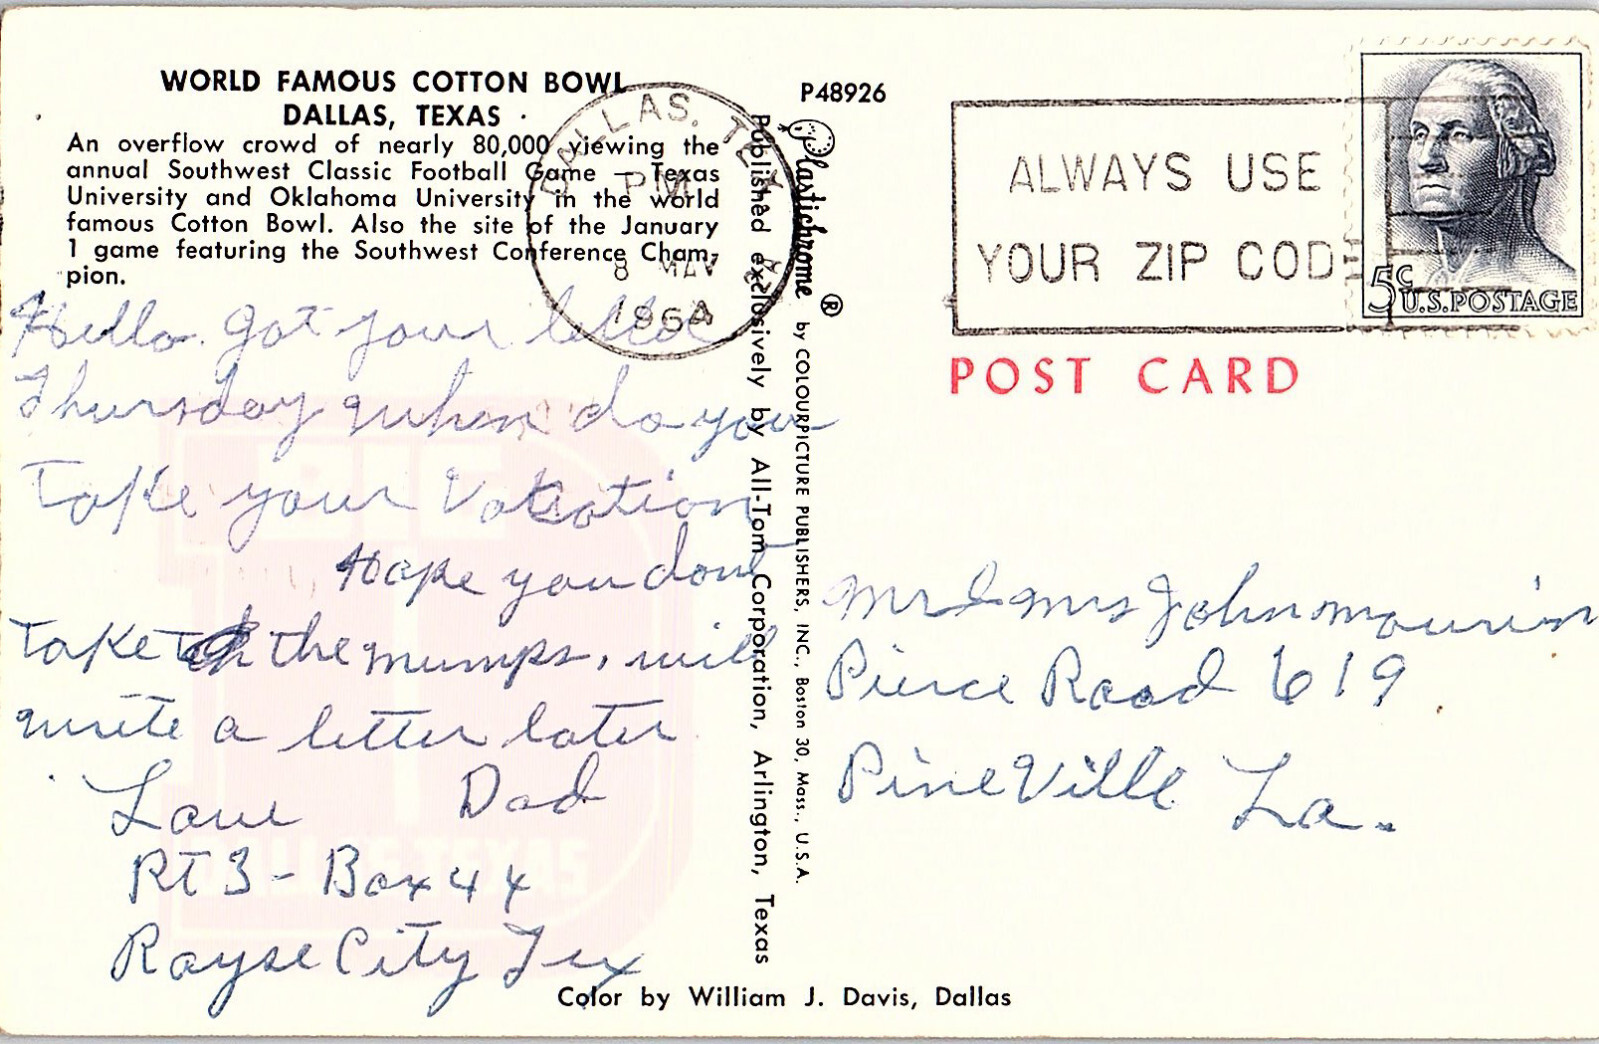 WORLD FAMOUS COTTON BOWL
DALLAS, TEXAS
An overflow crowd of nearly 80,000 viewing the
annual Southwest Classic Football Game — Texas
University and Oklahoma University in the world
famous Cotton Bowl. Also the site of the January
1 game featuring the Southwest Conference Cham-
pion.
Hello. got your letter
Thursday when do you
Take your Vacation
Hope you dont
Take the mumps, will
write a letter later
Love Dad
RT 3 - Box 44
Royse City Tex
DALLAS, TEX
PM
8 MAY
1964
P48926
Plastichrome ® by COLOURPICTURE PUBLISHERS, INC., Boston 30, Mass., U.S.A.
Published exclusively by All-Tom Corporation, Arlington, Texas
ALWAYS USE
YOUR ZIP CODE
5c U.S. POSTAGE
POST CARD
Mr & Mrs John Mourin
Pierce Road 619
PineVille La.
Color by William J. Davis, Dallas
BIG
D
DALLAS TEXAS